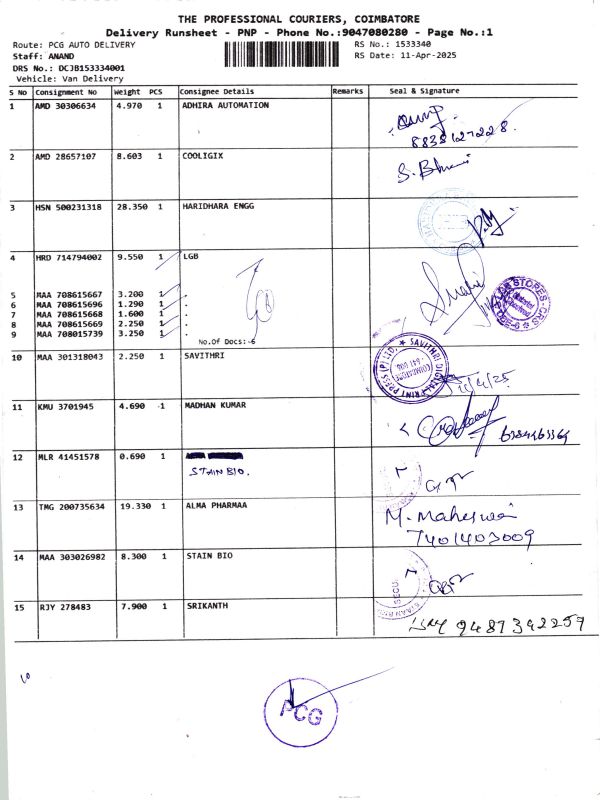 THE PROFESSIONAL COURIERS, COIMBATORE
Delivery Runsheet - PNP - Phone No.:9047080280 - Page No.:1
Route: PCG AUTO DELIVERY RS No.: 1533340
Staff: ANAND RS Date: 11-Apr-2025
DRS No.: DCJB153334001
Vehicle: Van Delivery
S No Consignment No Weight PCS Consignee Details Remarks Seal & Signature
1 AMD 30306634 4.970 1 ADHIRA AUTOMATION
8838127228.
2 AMD 28657107 8.603 1 COOLIGIX
3 HSN 500231318 28.350 1 HARIDHARA ENGG
4 HRD 714794002 9.550 1 LGB
5 MAA 708615667 3.200 1 .
6 MAA 708615696 1.290 1 .
7 MAA 708615668 1.600 1 .
8 MAA 708615669 2.250 1 .
9 MAA 708015739 3.250 1 .
No.Of Docs:-6
10 MAA 301318043 2.250 1 SAVITHRI
SAVITHRI DIGITAL PRINT PRESS (P) LTD. ★
COIMBATORE
11/4/25
11 KMU 3701945 4.690 1 MADHAN KUMAR
12 MLR 41451578 0.690 1
STAIN BIO.
13 TMG 200735634 19.330 1 ALMA PHARMAA
M. Maheswari
7401403009
14 MAA 303026982 8.300 1 STAIN BIO
15 RJY 278483 7.900 1 SRIKANTH
9487392257
10
PCG